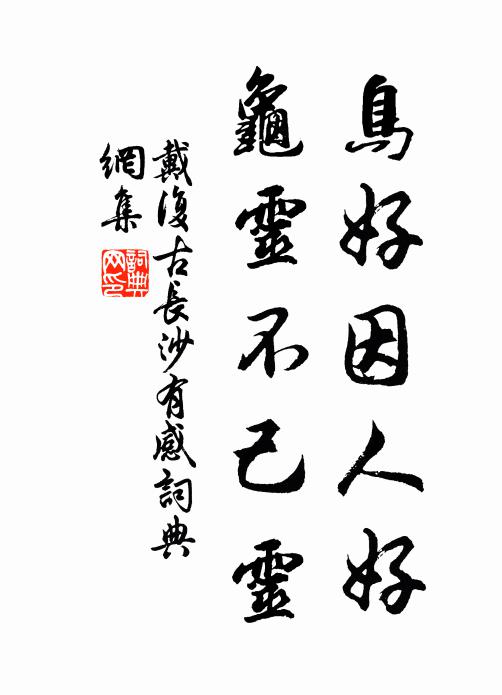 鳥好因人好
龜靈不己靈
戴復古長沙有感詞典
網集
詞典
网印